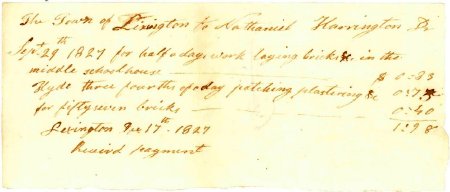 The Town of Lexington to Nathaniel Harrington Dr
Sept 29th 1827 for half a days work laying bricks &c in the
middle schoolhouse $ 0:83
Hyde three fourths of a day patching plastering &c 0:75
for fifty seven bricks 0:40
1:98
Lexington Dec 17th 1827
Receivd payment